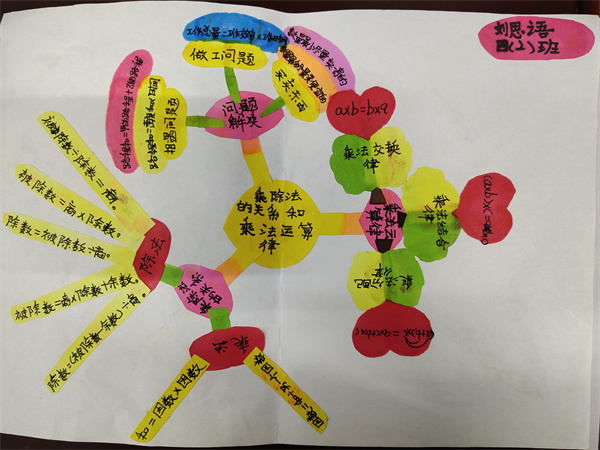 刘思语
四(2)班
乘除法
的关系和
乘法运算
律
问题
解决
做工问题
工作总量=工作效率×工作时间
买卖东西
相遇问题
乘法运
算律
乘法交换
律
a×b=b×a
乘法结合
律
乘法分
配
乘除法
的关系
除法
被除数÷除数=商。
被除数=商×除数。
除数=被除数÷商。
被除数=商×除数+余数。
除数=(被除数-余数)÷商。
乘法
积=因数×因数